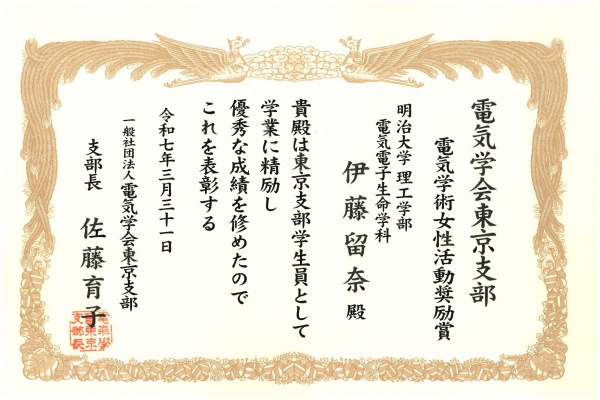 電気学会東京支部
電気学術女性活動奨励賞
明治大学 理工学部
電気電子生命学科
伊藤留奈 殿
貴殿は東京支部学生員として
学業に精励し
優秀な成績を修めたので
これを表彰する
令和七年三月三十一日
一般社団法人 電気学会東京支部
支部長 佐藤育子
電氣學
会東京
支部長